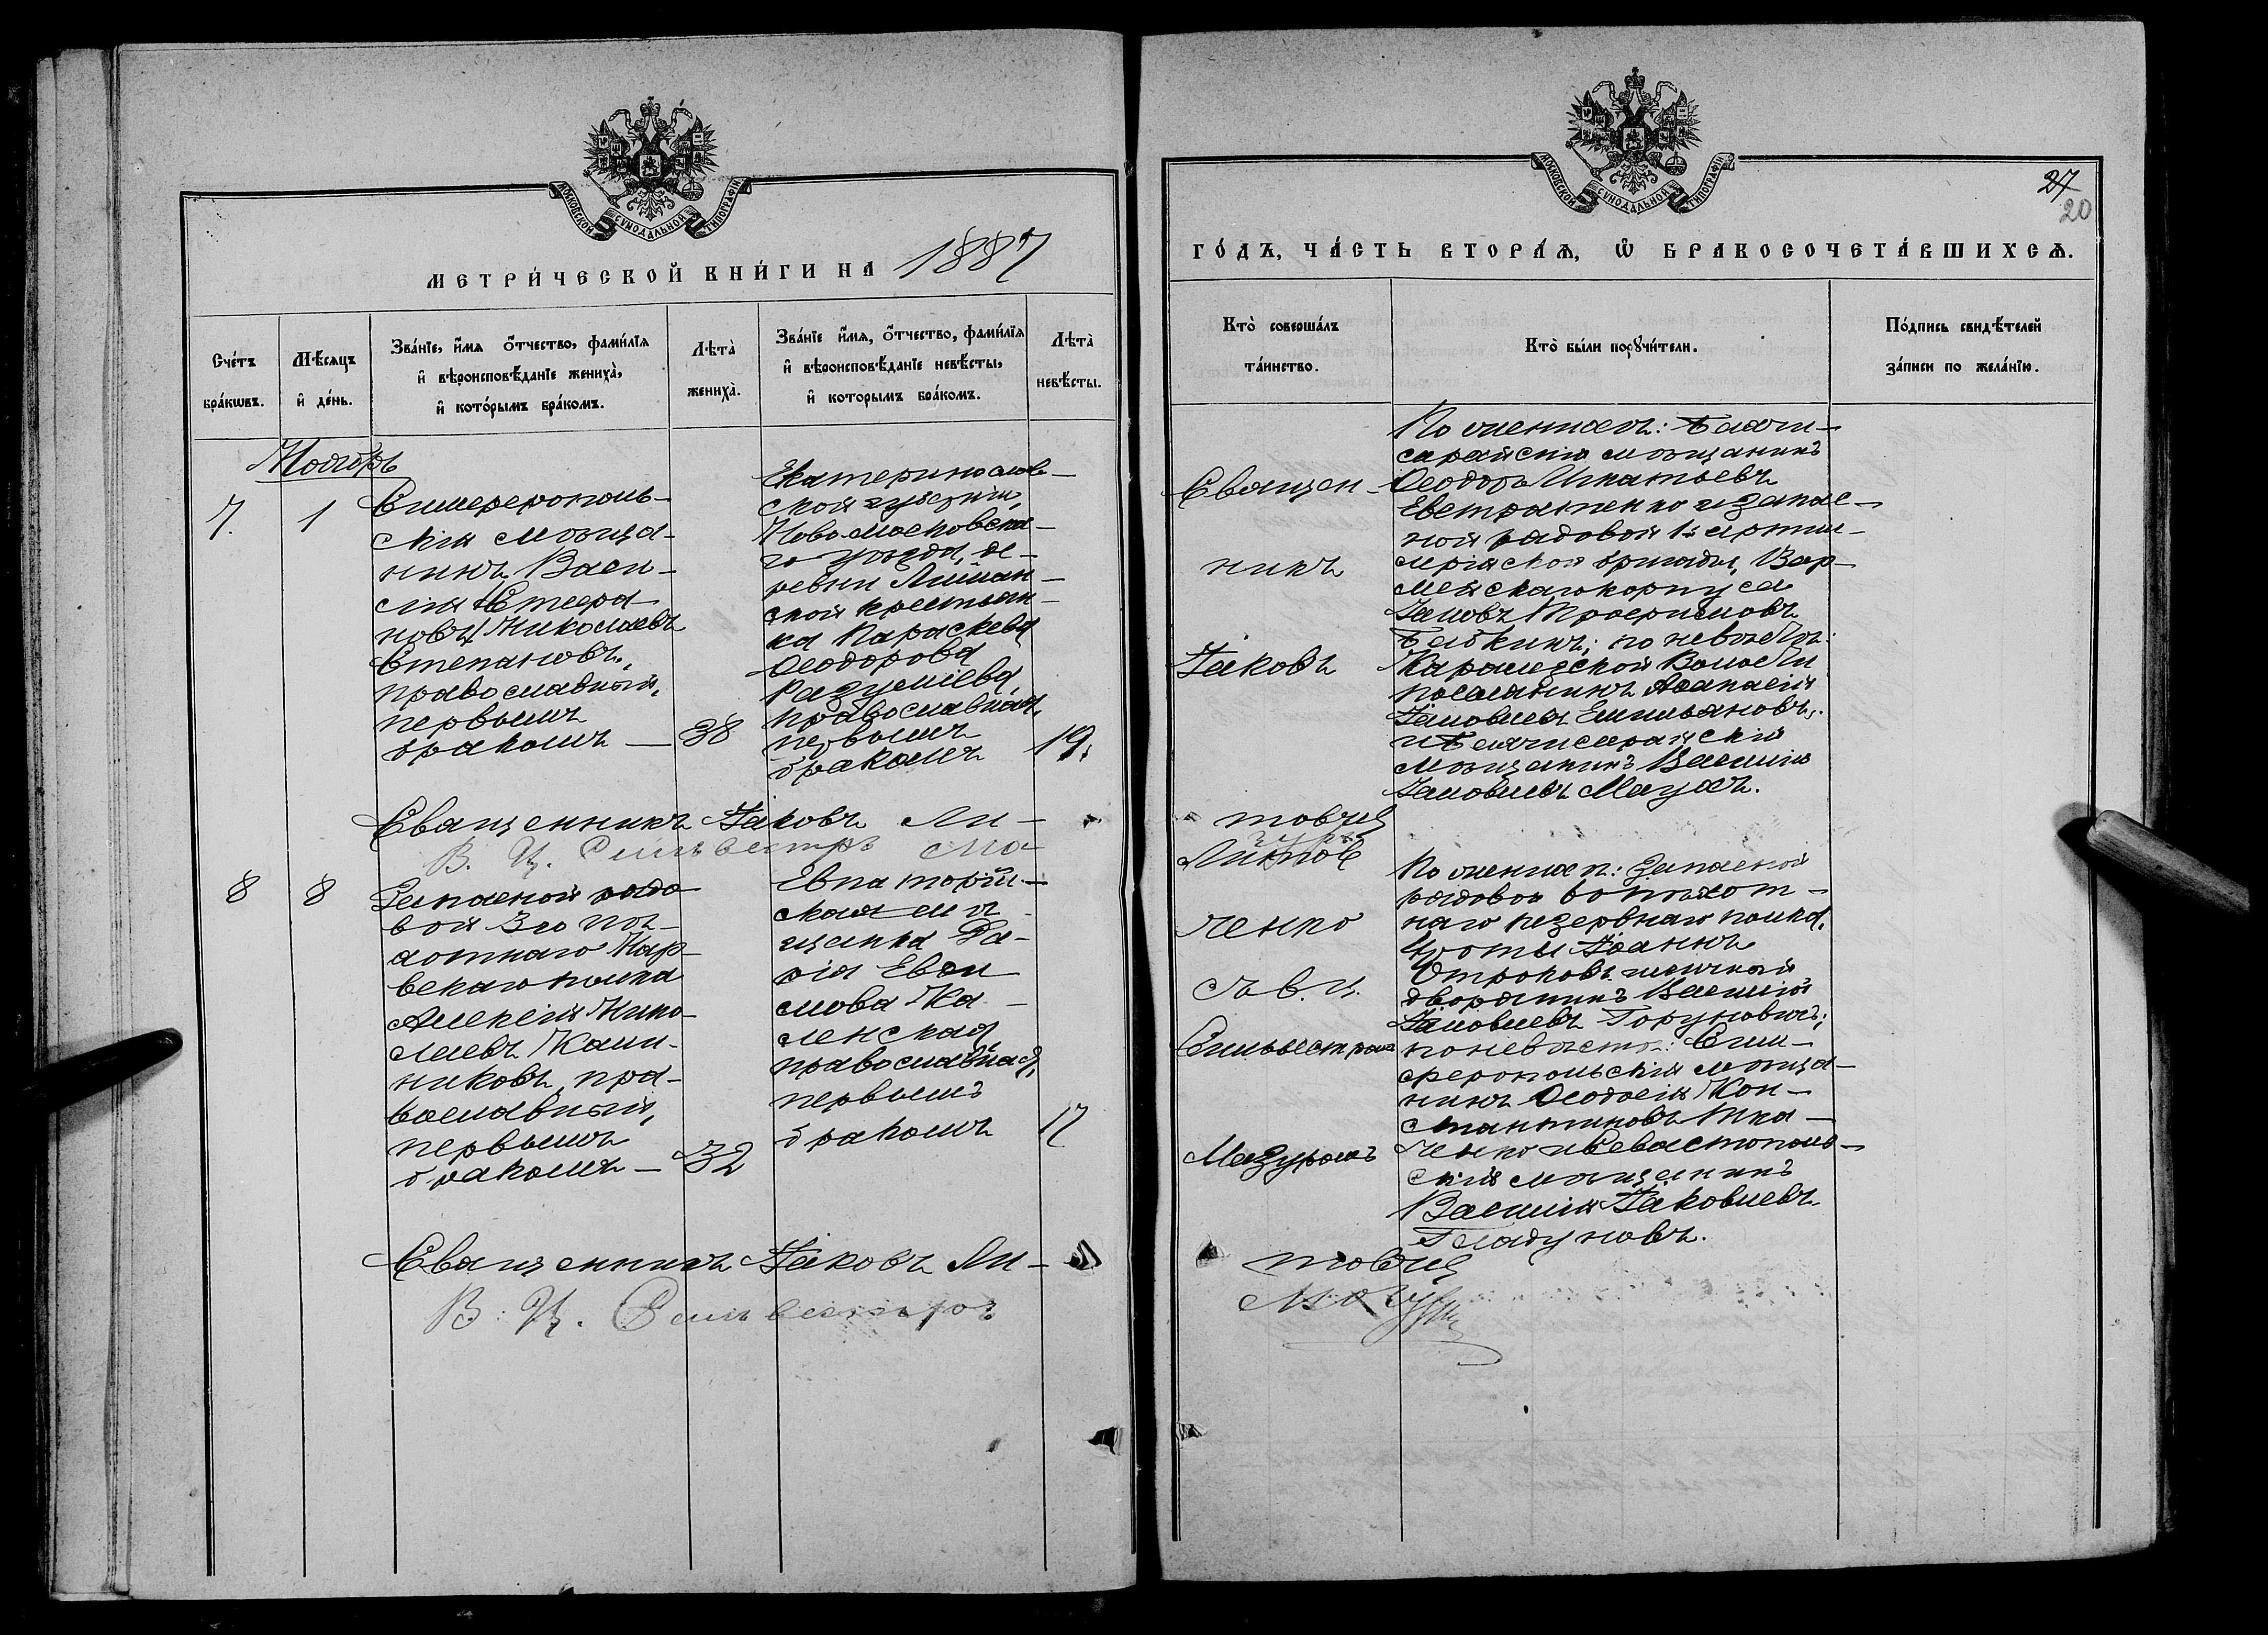 МОСКОВСКОЙ СУНОДАЛЬНОЙ ТИПОГРАФІИ
МЕТРИ́ЧЕСКОЙ КНИ́ГИ НА 1887
Сче́тъ бра́кѡвъ.
Мѣ́сяцъ и҆ де́нь.
Зва́нїе, и҆́мѧ ѻ҆́тчество, фами́лїѧ и҆ вѣроисповѣ́данїе жениха̀, и҆ кото́рымъ бра́комъ.
Лѣ́та̀ жениха̀.
Зва́нїе и҆́мѧ, ѻ҆́тчество, фами́лїѧ и҆ вѣроисповѣ́данїе невѣ́сты, и҆ которымъ бра́комъ.
Лѣ́та̀ невѣ́сты.
Ноябрь
7.
1
Симферополь-
скій мѣща-
нинъ Васи-
лій Стефа-
новъ Николаевъ
Степановъ,
православный,
первымъ
бракомъ —
38
Екатеринослав-
ской губерніи,
Ново-московска-
го уѣзда, де-
ревни
ской крестьян-
ка Параскева
Ѳеодорова
православная,
первымъ
бракомъ
19.
Священникъ Іаковъ Ли-
В. Ц. Сильвестръ Ма-
8
8
Запасной рядо-
вой 3го пѣ-
хотнаго Нар-
вскаго полка
Алексій Нико-
лаевъ Калин-
никовъ, пра-
вославный,
первымъ
бракомъ —
32
Евпаторій-
ская мѣ-
щанка Да-
рія
мова Ка-
ленская,
православная,
первымъ
бракомъ
17
Священникъ Іаковъ Ли-
В. Ц. Сильвестръ
МОСКОВСКОЙ СУНОДАЛЬНОЙ ТИПОГРАФІИ
27
20
ГО́ДЪ, ЧА́СТЬ ВТОРА́Ѧ, Ѡ҆ БРАКОСОЧЕТА́ВШИХСѦ.
Кто̀ соверша́лъ та́инство.
Кто̀ бы́ли порꙋчи́тели.
По́дпись свидѣ́телей за́писи по жела́нїю.
Священ-
никъ
Іаковъ
По женихѣ:
сарайскій мѣщанинъ
Ѳеодоръ Игнатьевъ
Евстратенко и запас-
ной рядовой 1й артил-
лерійской бригады,
мейскаго корпуса
Іаковъ Трофимовъ
Бабкинъ; по невѣстѣ:
волости
поселянинъ Аѳанасій
Іаковлевъ Емильяновъ,
мѣщанинъ Василій
Іаковлевъ
товчен
Литов
ченко
съ в. ц.
Сильвестромъ
Мазуромъ
По женихѣ: Запасной
рядовой
наго резервнаго полка,
роты Іоаннъ
Отроковъ и личный
дворянинъ Василій
Іаковлевъ Горуновичъ;
по невѣстѣ: Сим-
феропольскій мѣща-
нинъ Ѳеодосій Кон-
стантиновъ Тка-
ченко и Севастополь-
скій мѣщанинъ
Василій Іаковлевъ
Гладуновъ.
товчен
Мазуръ